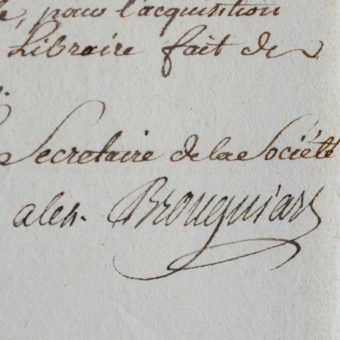 , pour l'acquisition
Libraire fait de
Secretaire de la Société
alex. Brongniart